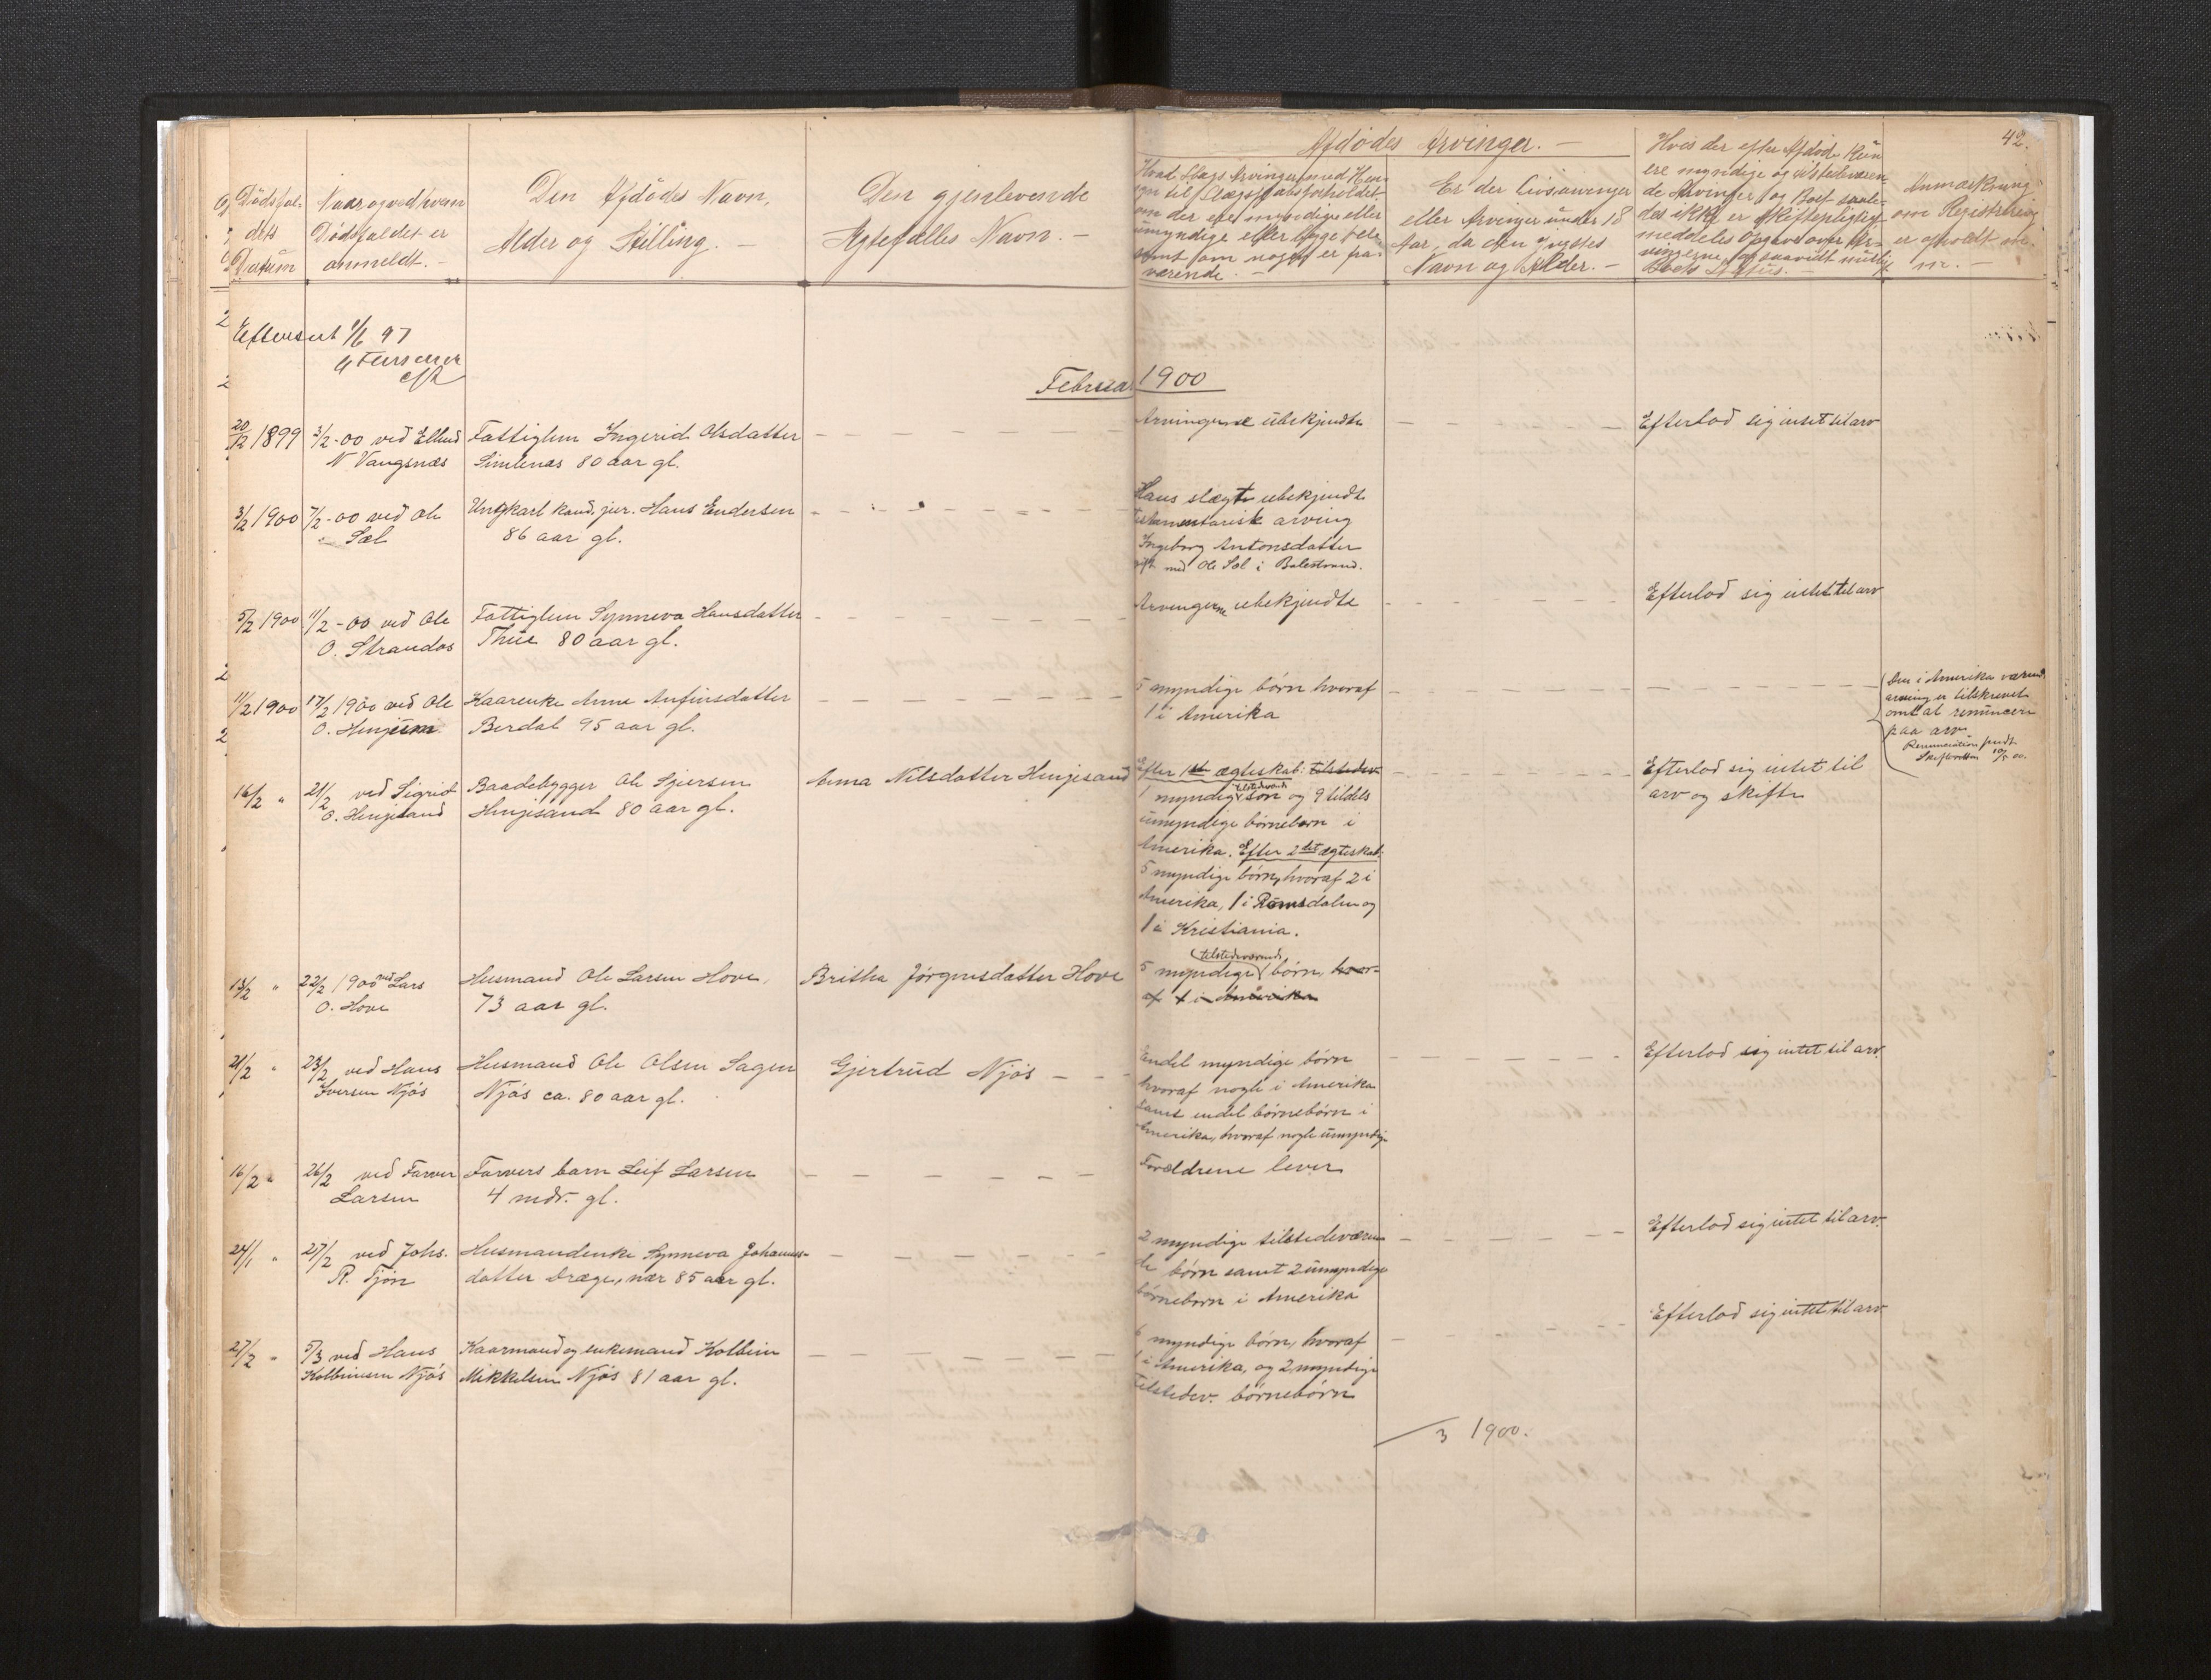 42.
Dødsfal-
dets
Datum
Naar og ved hvem
Dødsfaldet er
anmeldt. -
Den Afdødes Navn,
Alder og Stilling. -
Den gjenlevende
Ægtefælles Navn. -
Afdødes Arvinger. -
Hvad Slags Arvinger med Hen-
syn til Slægtskabsforholdet
om der ere myndige eller
umyndige eller begge dele
samt om nogen er fra-
værende. -
Er der Livsarvinger
eller Arvinger under 18
Aar, da den yngstes
Navn og Alder. -
Hvis der efter Afdøde kun
ere myndige og tilstedeværen-
de Arvinger og Boet saale-
des ikke er skiftepligtigt
meddeles Opgave over Ar-
vingerne og saavidt muligt
Boets Status. -
Anmærkning
om Registrering
er afholdt
Efterseet 1/6 97
Februar 1900
20/12 1899
3/2-00 ved Elling
N Vangsnæs
Fattiglem Ingerid Olsdatter
Simlenæs 80 aar gl.
Arvingerne ubekjendte
Efterlod sig intet til arv
3/2 1900
7/2-00 ved Ole
Sæl
Ungkarl kand. jur. Hans Endersen
86 aar gl.
Hans slægt ubekjendt
testamentarisk arving
Ingeborg Antonsdatter
gift med Ole Sæl i Balestrand.
5/2 1900
11/2-00 ved Ole
O. Strandos
Fattiglem Synneva Hansdatter
Thue 80 aar gl.
Arvingerne ubekjendte
Efterlod sig intet til arv
11/2 1900
17/2 1900 ved Ole
O. Henjum
Kaarenke Anne Anfinsdatter
Berdal 95 aar gl.
5 myndige børn hvoraf
1 i Amerika
Den i Amerika værende
arving er tilskrevet
om at renuncere
paa arv
Renunciation sendt
Skifteretten 10/5 00.
16/2 "
21/2 ved Sigrid
O. Henjesand
Baadebygger Ole Sjursen
Henjesand 80 aar gl.
Anna Nilsdatter Henjesand
Efter 1ste ægteskab: tilstedev.
1 myndig tilstedeværende søn og 9 tildels
umyndige børnebørn i
Amerika. Efter 2det ægteskab:
5 myndige børn, hvoraf 2 i
Amerika, 1 i Romsdalen og
1 i Kristiania.
Efterlod sig intet til
arv og skifte
13/2 "
22/2 1900 ved Lars
O. Hove
Husmand Ole Larsen Hove,
73 aar gl.
Britha Jørgensdatter Hove
5 myndige (tilstedeværende) børn, hvor-
af 1 i Amerika
21/2 "
23/2 ved Hans
Iversen Njøs
Husmand Ole Olsen Sagen
Njøs ca. 80 aar gl.
Gjertrud Njøs -
Endel myndige børn
hvoraf nogle i Amerika
samt endel børnebørn i
Amerika, hvoraf nogle umyndige
Efterlod sig intet til arv.
16/2 "
26/2 ved Farver
Larsen
Farvers barn Leif Larsen
4 mdr. gl.
Forældrene lever
24/1 "
27/2 ved Johs.
R. Tjøn
Husmandenke Synneva Johannes-
datter Dræge, nær 85 aar gl.
2 myndige tilstedeværen-
de børn samt 2 umyndige
børnebørn i Amerika
Efterlod sig intet til arv.
27/2 "
5/3 ved Hans
Kolbeinsen Njøs
Kaarmand og enkemand Kolbein
Mikkelsen Njøs 81 aar gl.
6 myndige børn, hvoraf
1 i Amerika, og 2 myndige
tilstedev. børnebørn
Efterlod sig intet til arv
3 1900.